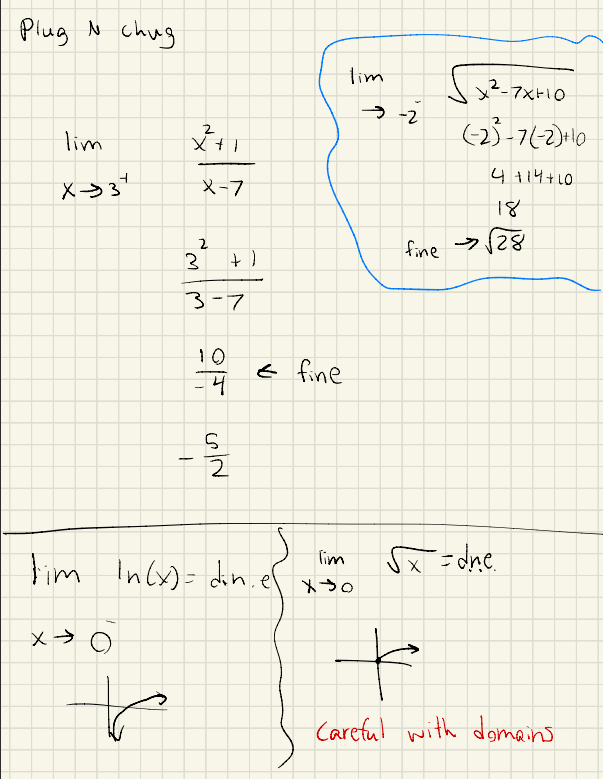 Plug N chug
lim x→3⁺ (x²+1)/(x-7)
(3²+1)/(3-7)
10/-4 ← fine
-5/2
lim → -2⁻ √(x²-7x+10)
(-2)²-7(-2)+10
4+14+10
18
fine → √28
lim x→0⁻ ln(x) = d.n.e
lim x→0 √x = d.n.e.
careful with domains